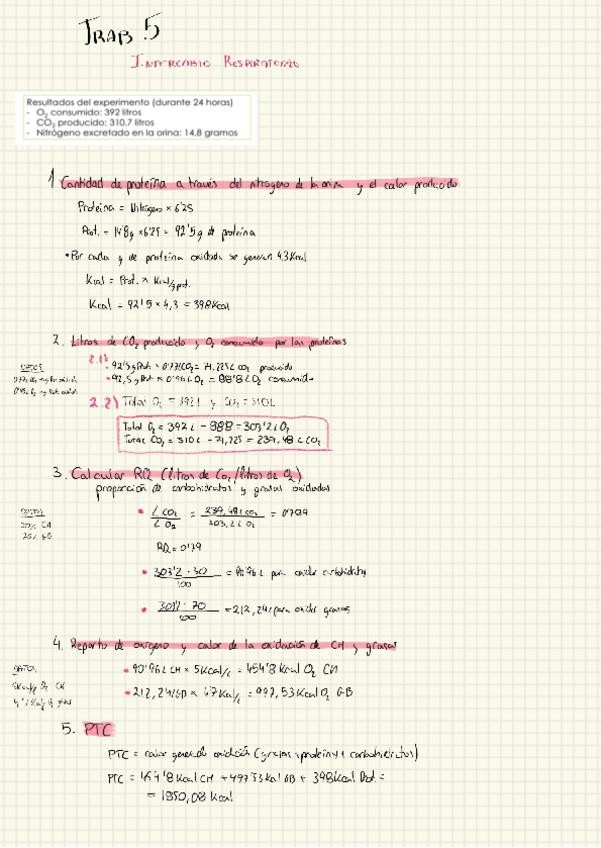 TRAB 5
INTERCAMBIO RESPIRATORIO
Resultados del experimento (durante 24 horas)
- O₂ consumido: 392 litros
- CO₂ producido: 310,7 litros
- Nitrógeno excretado en la orina: 14,8 gramos
1 Cantidad de proteína a través del nitrogeno de la orina y el calor producido
Proteína = Nitrógeno × 6'25
Prot. = 14'8g × 6'25 = 92'5 g de proteína
• Por cada g de proteína oxidada se generan 4,3 Kcal
Kcal = Prot. × Kcal/g prot.
Kcal = 92'5 × 4,3 = 398 Kcal
2. Litros de CO₂ producido y O₂ consumido por las proteínas
2.1)
• 92'5 g Prot × 0'77 CO₂ = 71,225 L CO₂ producido
DATOS
• 92,5 g Prot × 0'96 L O₂ = 88'8 L O₂ consumido
2.2) Total O₂ = 392 L y CO₂ = 310L
Total O₂ = 392 L - 88'8 = 303'2 L O₂
Total CO₂ = 310 L - 71,225 = 239,48 L CO₂
3. Calcular RQ (litros de CO₂/litros de O₂)
proporción de carbohidratos y grasas oxidados
DATOS
• L CO₂ / L O₂ = 239,48 L CO₂ / 303,2 L O₂ = 0'789
RQ = 0'79
• 303'2 · 30 / 100 = 90'96 L para oxidar carbohidratos
• 303'2 · 70 / 100 = 212,24 L para oxidar grasas
4. Reparto de oxígeno y calor de la oxidación de CH y grasas
DATOS
• 90'96 L CH × 5 Kcal/L = 454'8 Kcal O₂ CH
• 212,24 L GB × 4'7 Kcal/L = 997,53 Kcal O₂ GB
5. PTC
PTC = calor general oxidación (grasas + proteína + carbohidratos)
PTC = 454'8 Kcal CH + 997'53 Kcal GB + 398 Kcal Prot =
= 1850,08 Kcal